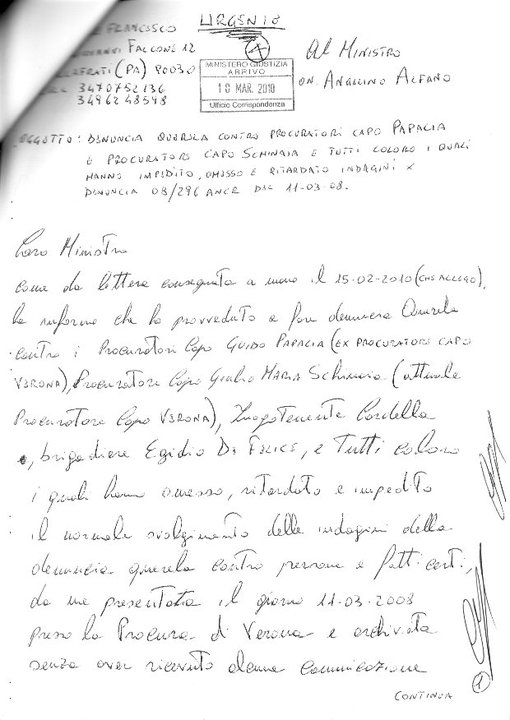 FRANCESCO
URGENTE
FALCONE 12
(PA) 90030
3470752136
3496248598
MINISTERO GIUSTIZIA
ARRIVO
18 MAR. 2010
Ufficio Corrispondenza
Al MINISTRO
ON. ANGELINO ALFANO
OGGETTO: DENUNCIA QUERELA CONTRO PROCURATORI CAPO PAPALIA
E PROCURATORE CAPO SCHINAIA E TUTTI COLORO I QUALI
HANNO IMPEDITO, OMESSO E RITARDATO INDAGINI X
DENUNCIA 08/296 ANCR DEL 11-03-08.
Caro Ministro
come da lettera consegnata a mano il 15-02-2010 (CHE ALLEGO),
la informo che ho provveduto a fare denuncia Querela
contro i Procuratori Capo GUIDO PAPALIA (EX PROCURATORE CAPO
VERONA), Procuratore Capo Giulio MARIA Schinaia (attuale
Procuratore Capo VERONA), Luogotenente Cardella
, brigadiere Egidio DE FELICE, e Tutti coloro
i quali hanno omesso, ritardato e impedito
il normale svolgimento delle indagini della
denuncia querela contro persone e fatti certi,
da me presentata il giorno 11-03-2008
presso la Procura di Verona e archiviata
senza aver ricevuto alcuna comunicazione
1
CONTINUA